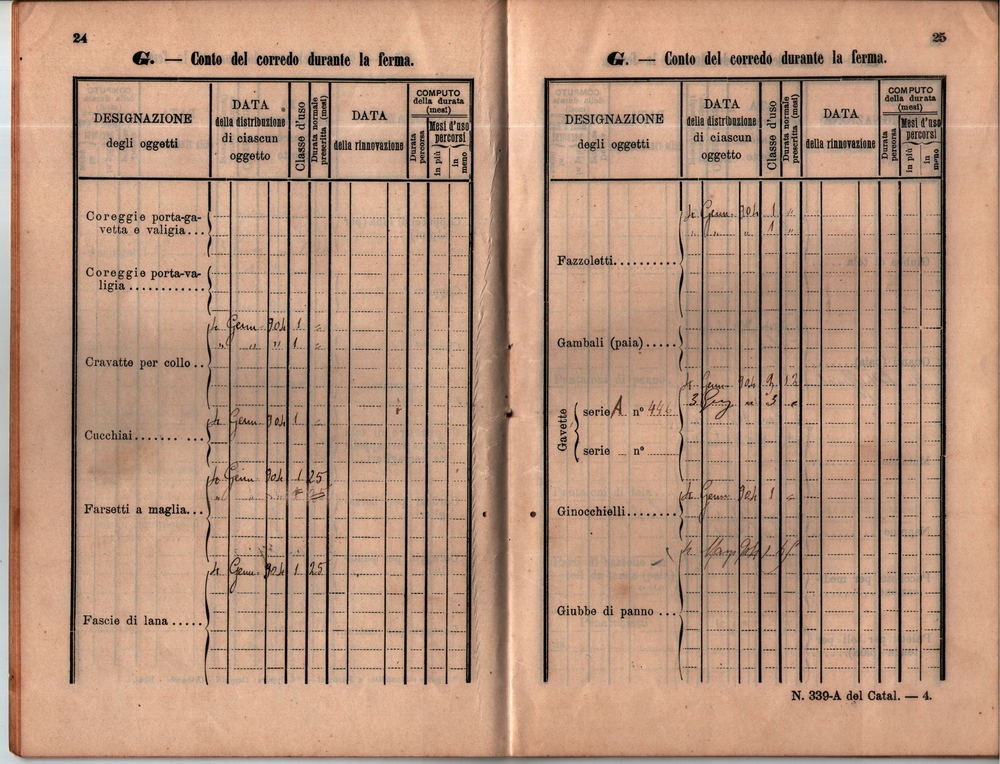 24
G. — Conto del corredo durante la ferma.
DESIGNAZIONE
degli oggetti
DATA
della distribuzione
di ciascun
oggetto
Classe d'uso
Durata normale
prescritta (mesi)
DATA
della rinnovazione
COMPUTO
della durata
(mesi)
Durata
percorsa
Mesi d'uso
percorsi
in più
in
meno
Coreggie porta-ga-
vetta e valigia...
Coreggie porta-va-
ligia ...........
Genn. 904 1 "
" " " 1 "
Cravatte per collo ..
Genn. 904 1 "
Cucchiai....... ...
Genn. 904 1 25
Farsetti a maglia...
Genn. 904 1 25
Fascie di lana .....
25
G. — Conto del corredo durante la ferma.
DESIGNAZIONE
degli oggetti
DATA
della distribuzione
di ciascun
oggetto
Classe d'uso
Durata normale
prescritta (mesi)
DATA
della rinnovazione
COMPUTO
della durata
(mesi)
Durata
percorsa
Mesi d'uso
percorsi
in più
in
meno
Genn. 904 1 "
" " " 1 "
Fazzoletti..........
Gambali (paia).....
Genn. 904 2 12
3
Gavette
serie A nº
serie ... nº ......
Genn. 904 1 "
Ginocchielli........
904 1
Giubbe di panno ...
N. 339-A del Catal. — 4.